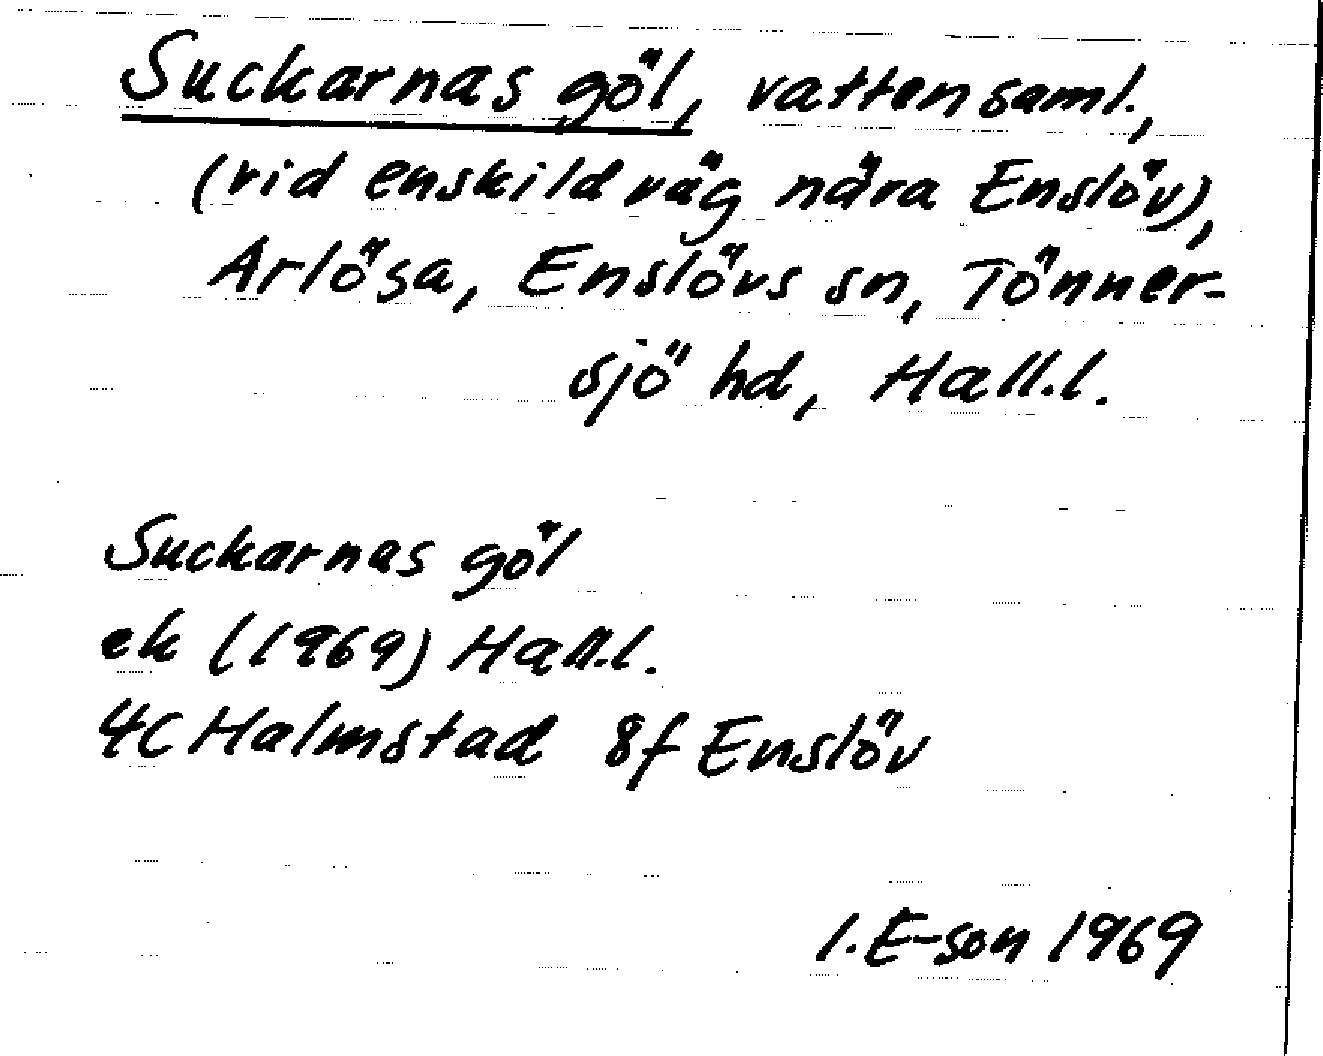 Suckarnas göl, vattensaml.,
(vid enskild väg nära Enslöv),
Årlösa, Enslövs sn, Tönner-
sjö hd, Hall.l.
Suckarnas göl
ek (1969) Hall.l.
4C Halmstad 8f Enslöv
I. E-son 1969